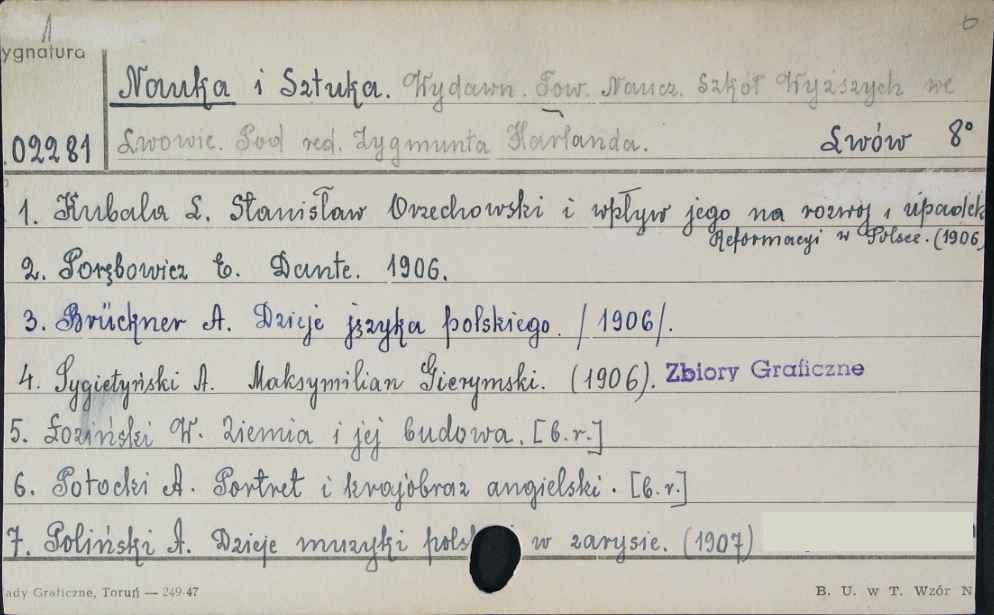 ygnatura
Nauka i Sztuka. Wydawn. Tow. Naucz. Szkół Wyższych we
02281 Lwowie. Pod red. Zygmunta Harlanda. Lwów 8°
1. Kubala L. Stanisław Orzechowski i wpływ jego na rozwój i upadek
Reformacyi w Polsce. (1906
2. Porębowicz E. Dante. 1906.
3. Brückner A. Dzieje języka polskiego. /1906/.
4. Sygietyński A. Maksymilian Gierymski. (1906). Zbiory Graficzne
5. Łoziński W. Ziemia i jej budowa. [b.r.]
6. Potocki A. Portret i krajobraz angielski. [b.r.]
7. Poliński A. Dzieje muzyki pols i w zarysie. (1907)
ady Graficzne, Toruń — 249-47 B. U. w T. Wzór N